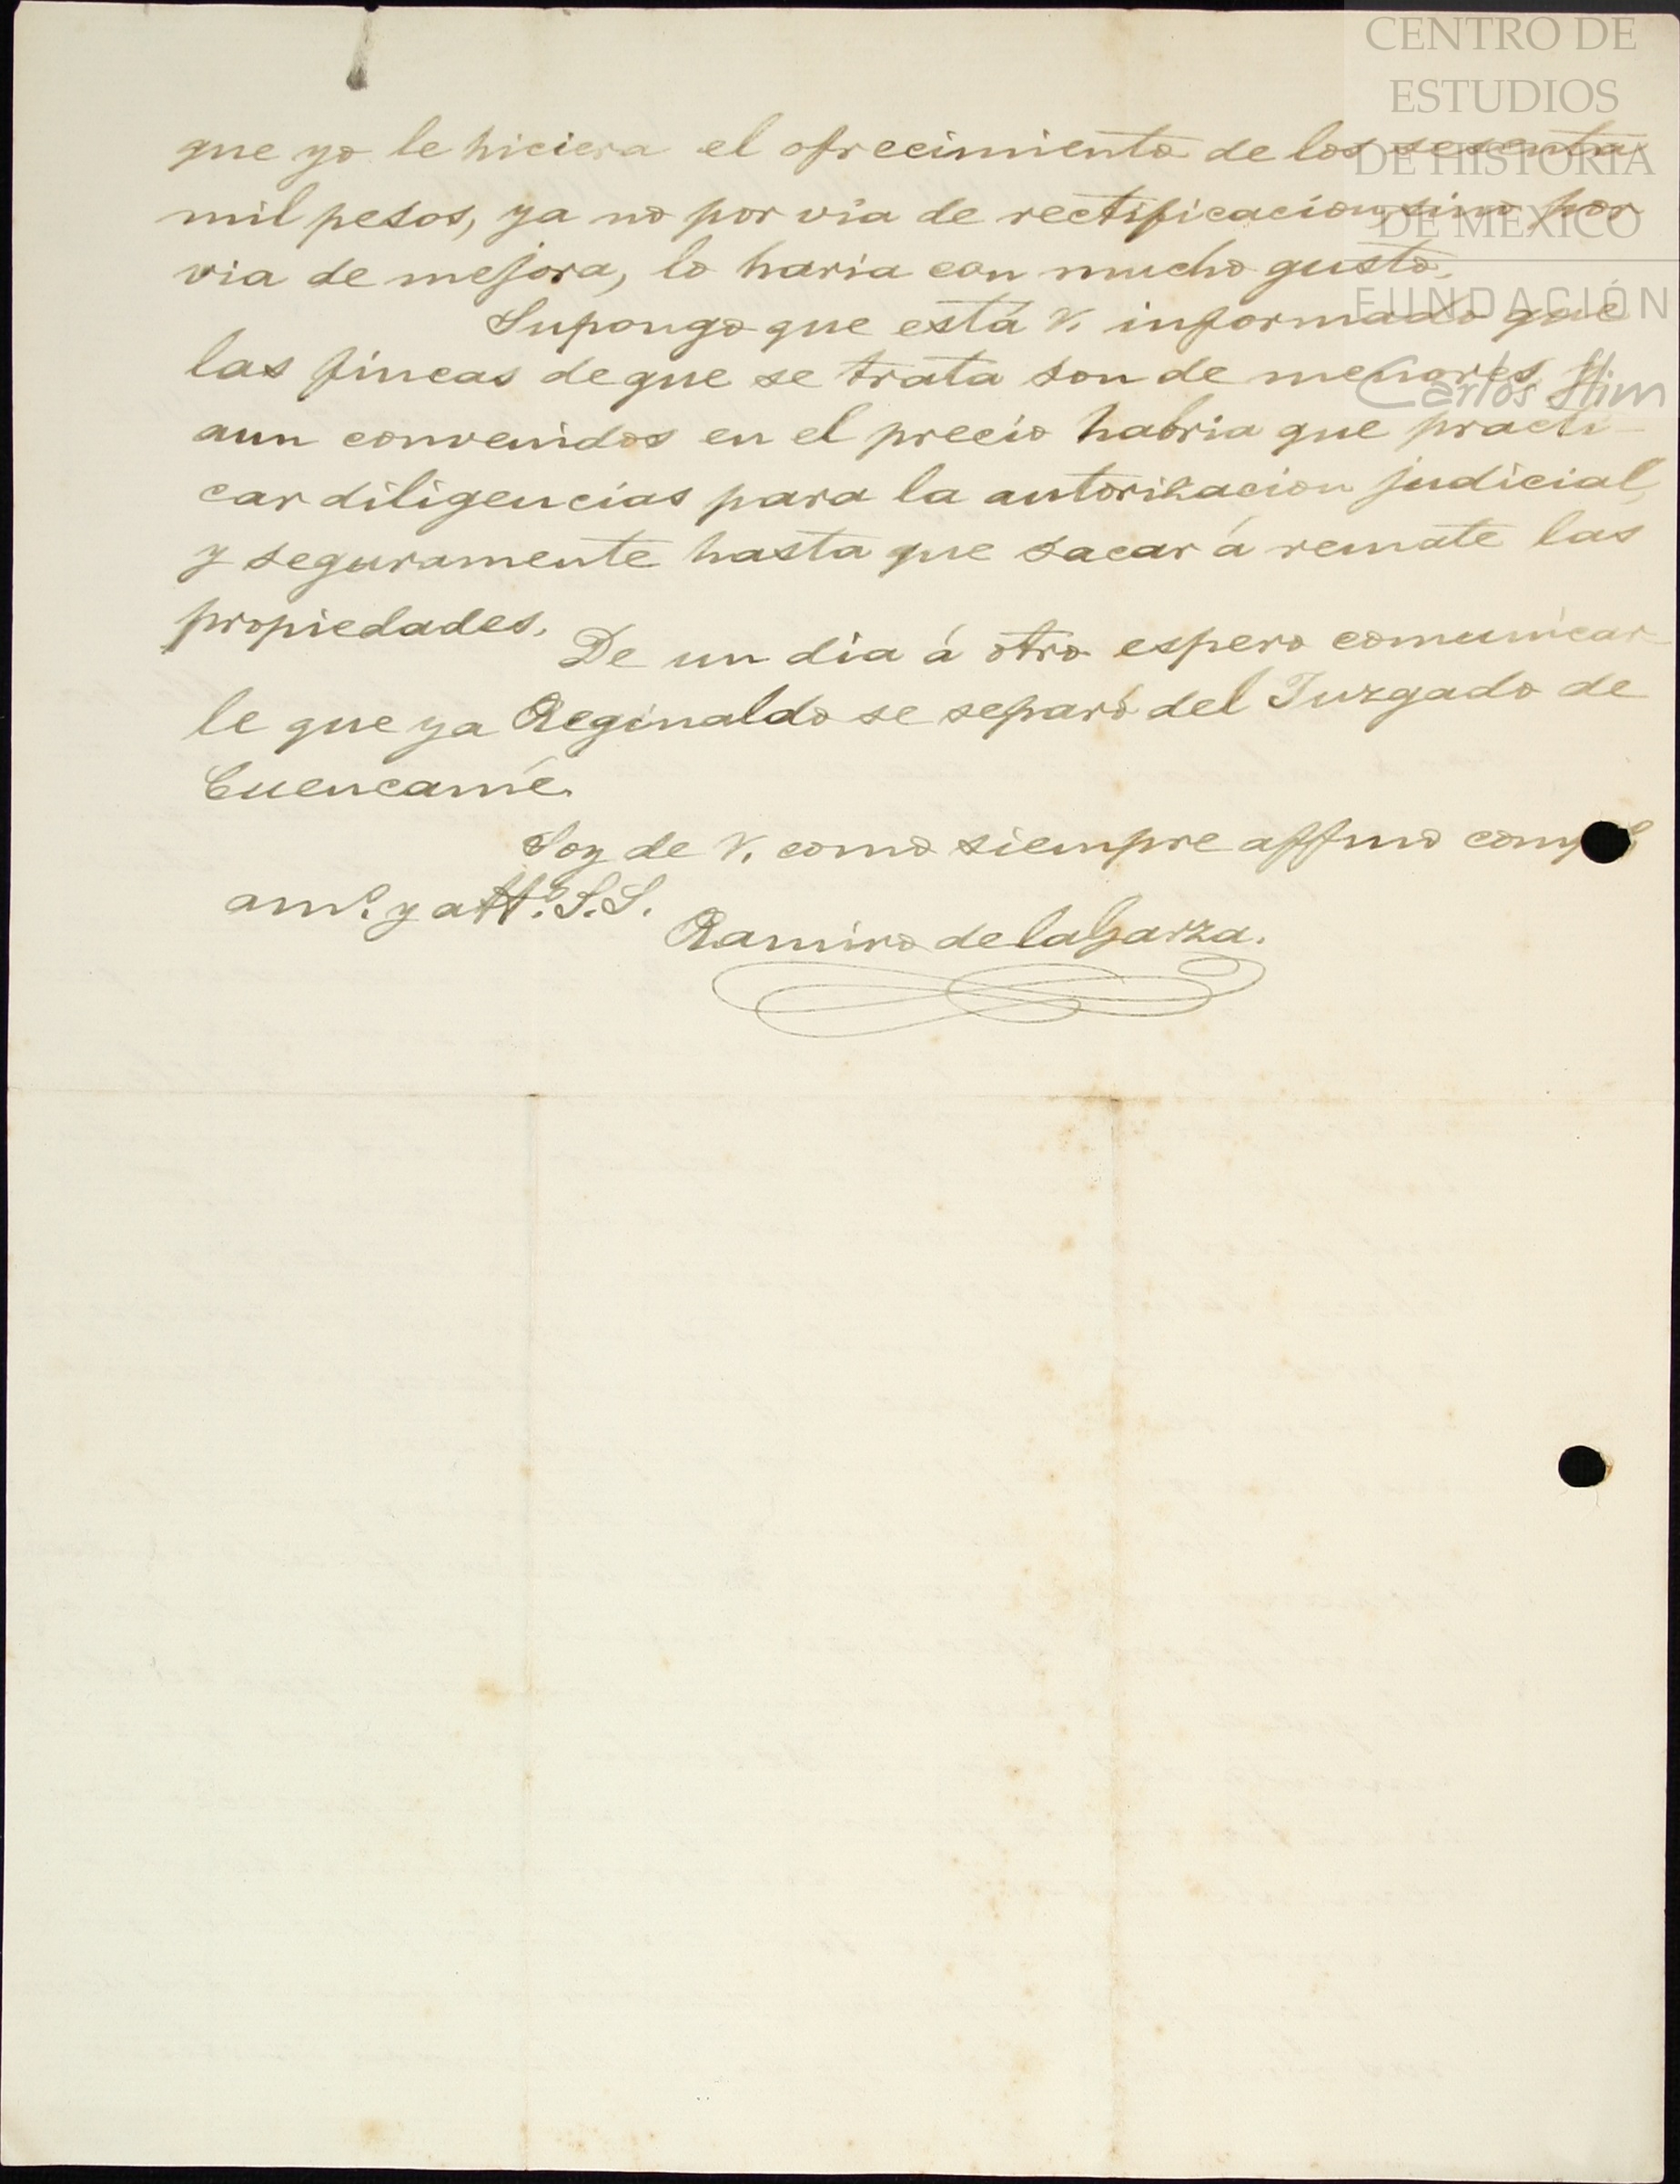 CENTRO DE
ESTUDIOS
DE HISTORIA
DE MÉXICO
FUNDACIÓN
Carlos Slim
que yo le hiciera el ofrecimiento de los sesenta
mil pesos, ya no por via de rectificacion, sino por
via de mejora, lo haria con mucho gusto.
Supongo que está V. informado que
las fincas de que se trata son de menores y
aun convenidos en el precio habria que practi-
car diligencias para la autorizacion judicial,
y seguramente hasta que sacar á remate las
propiedades.
De un dia á otro espero comunicar
le que ya Reginaldo se separó del Juzgado de
Cuencamé.
Soy de V. como siempre affmo
amo. y atto. S.S.
Ramiro de la Garza.